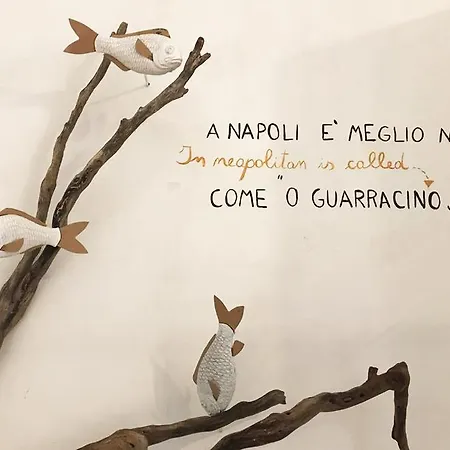 A NAPOLI E' MEGLIO N
In neapolitan is called
COME "O GUARRACINO.